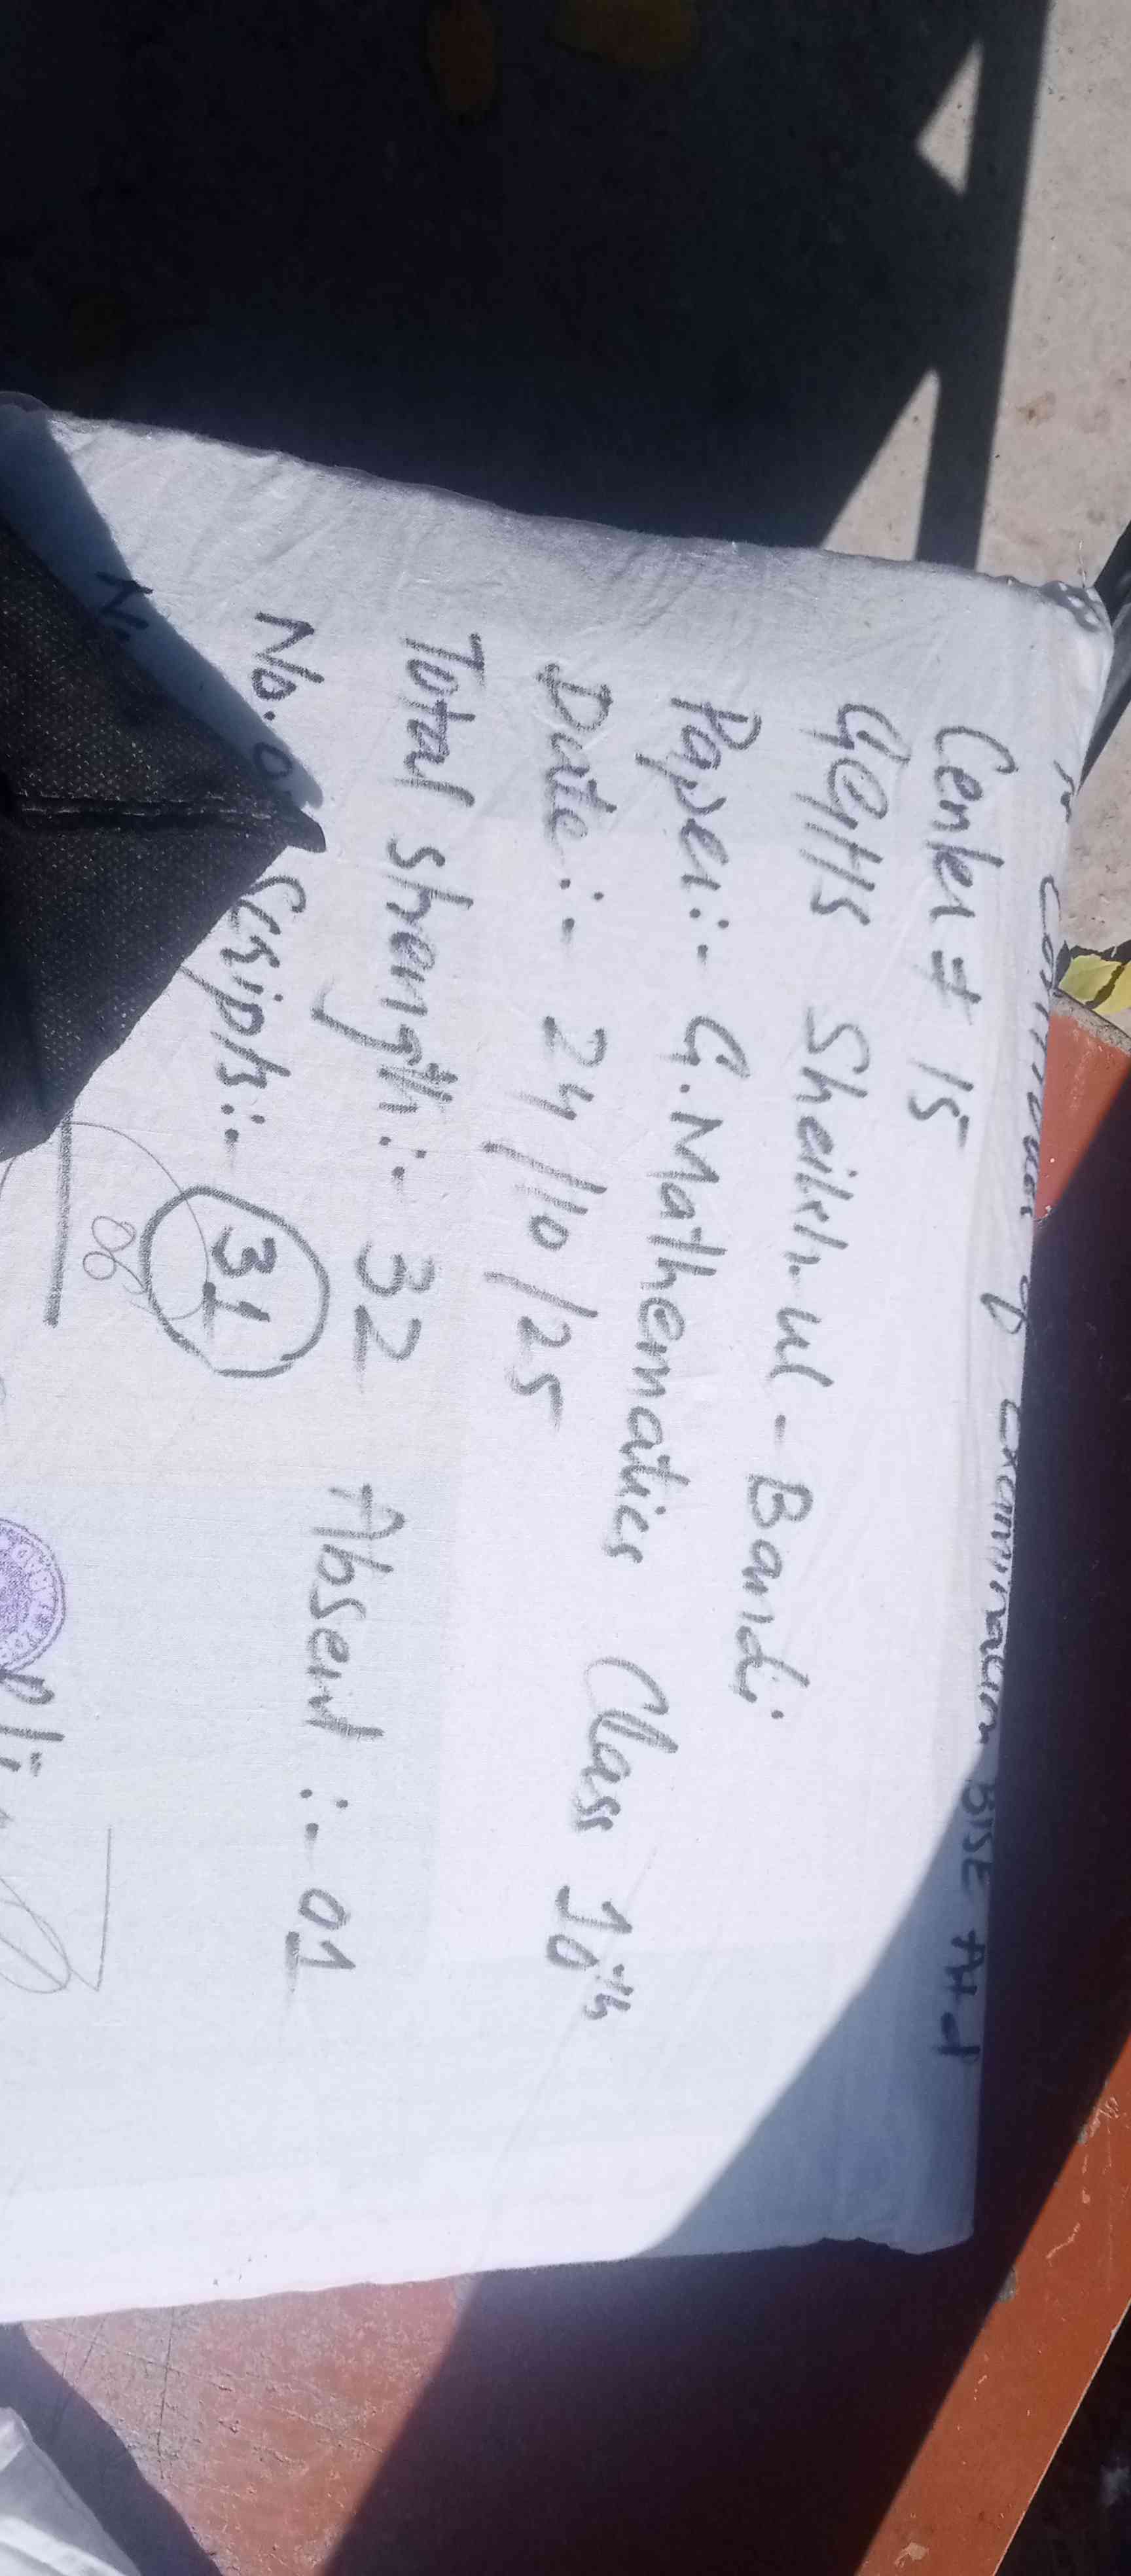 Controller of Examination BISE Atd
Center # 15
GGHS Sheikh-ul-Bandi
Paper:- G.Mathematics Class 10th
Date:- 24/10/25
Total Strength:- 32 Absent:- 01
No. of Scripts:- 31